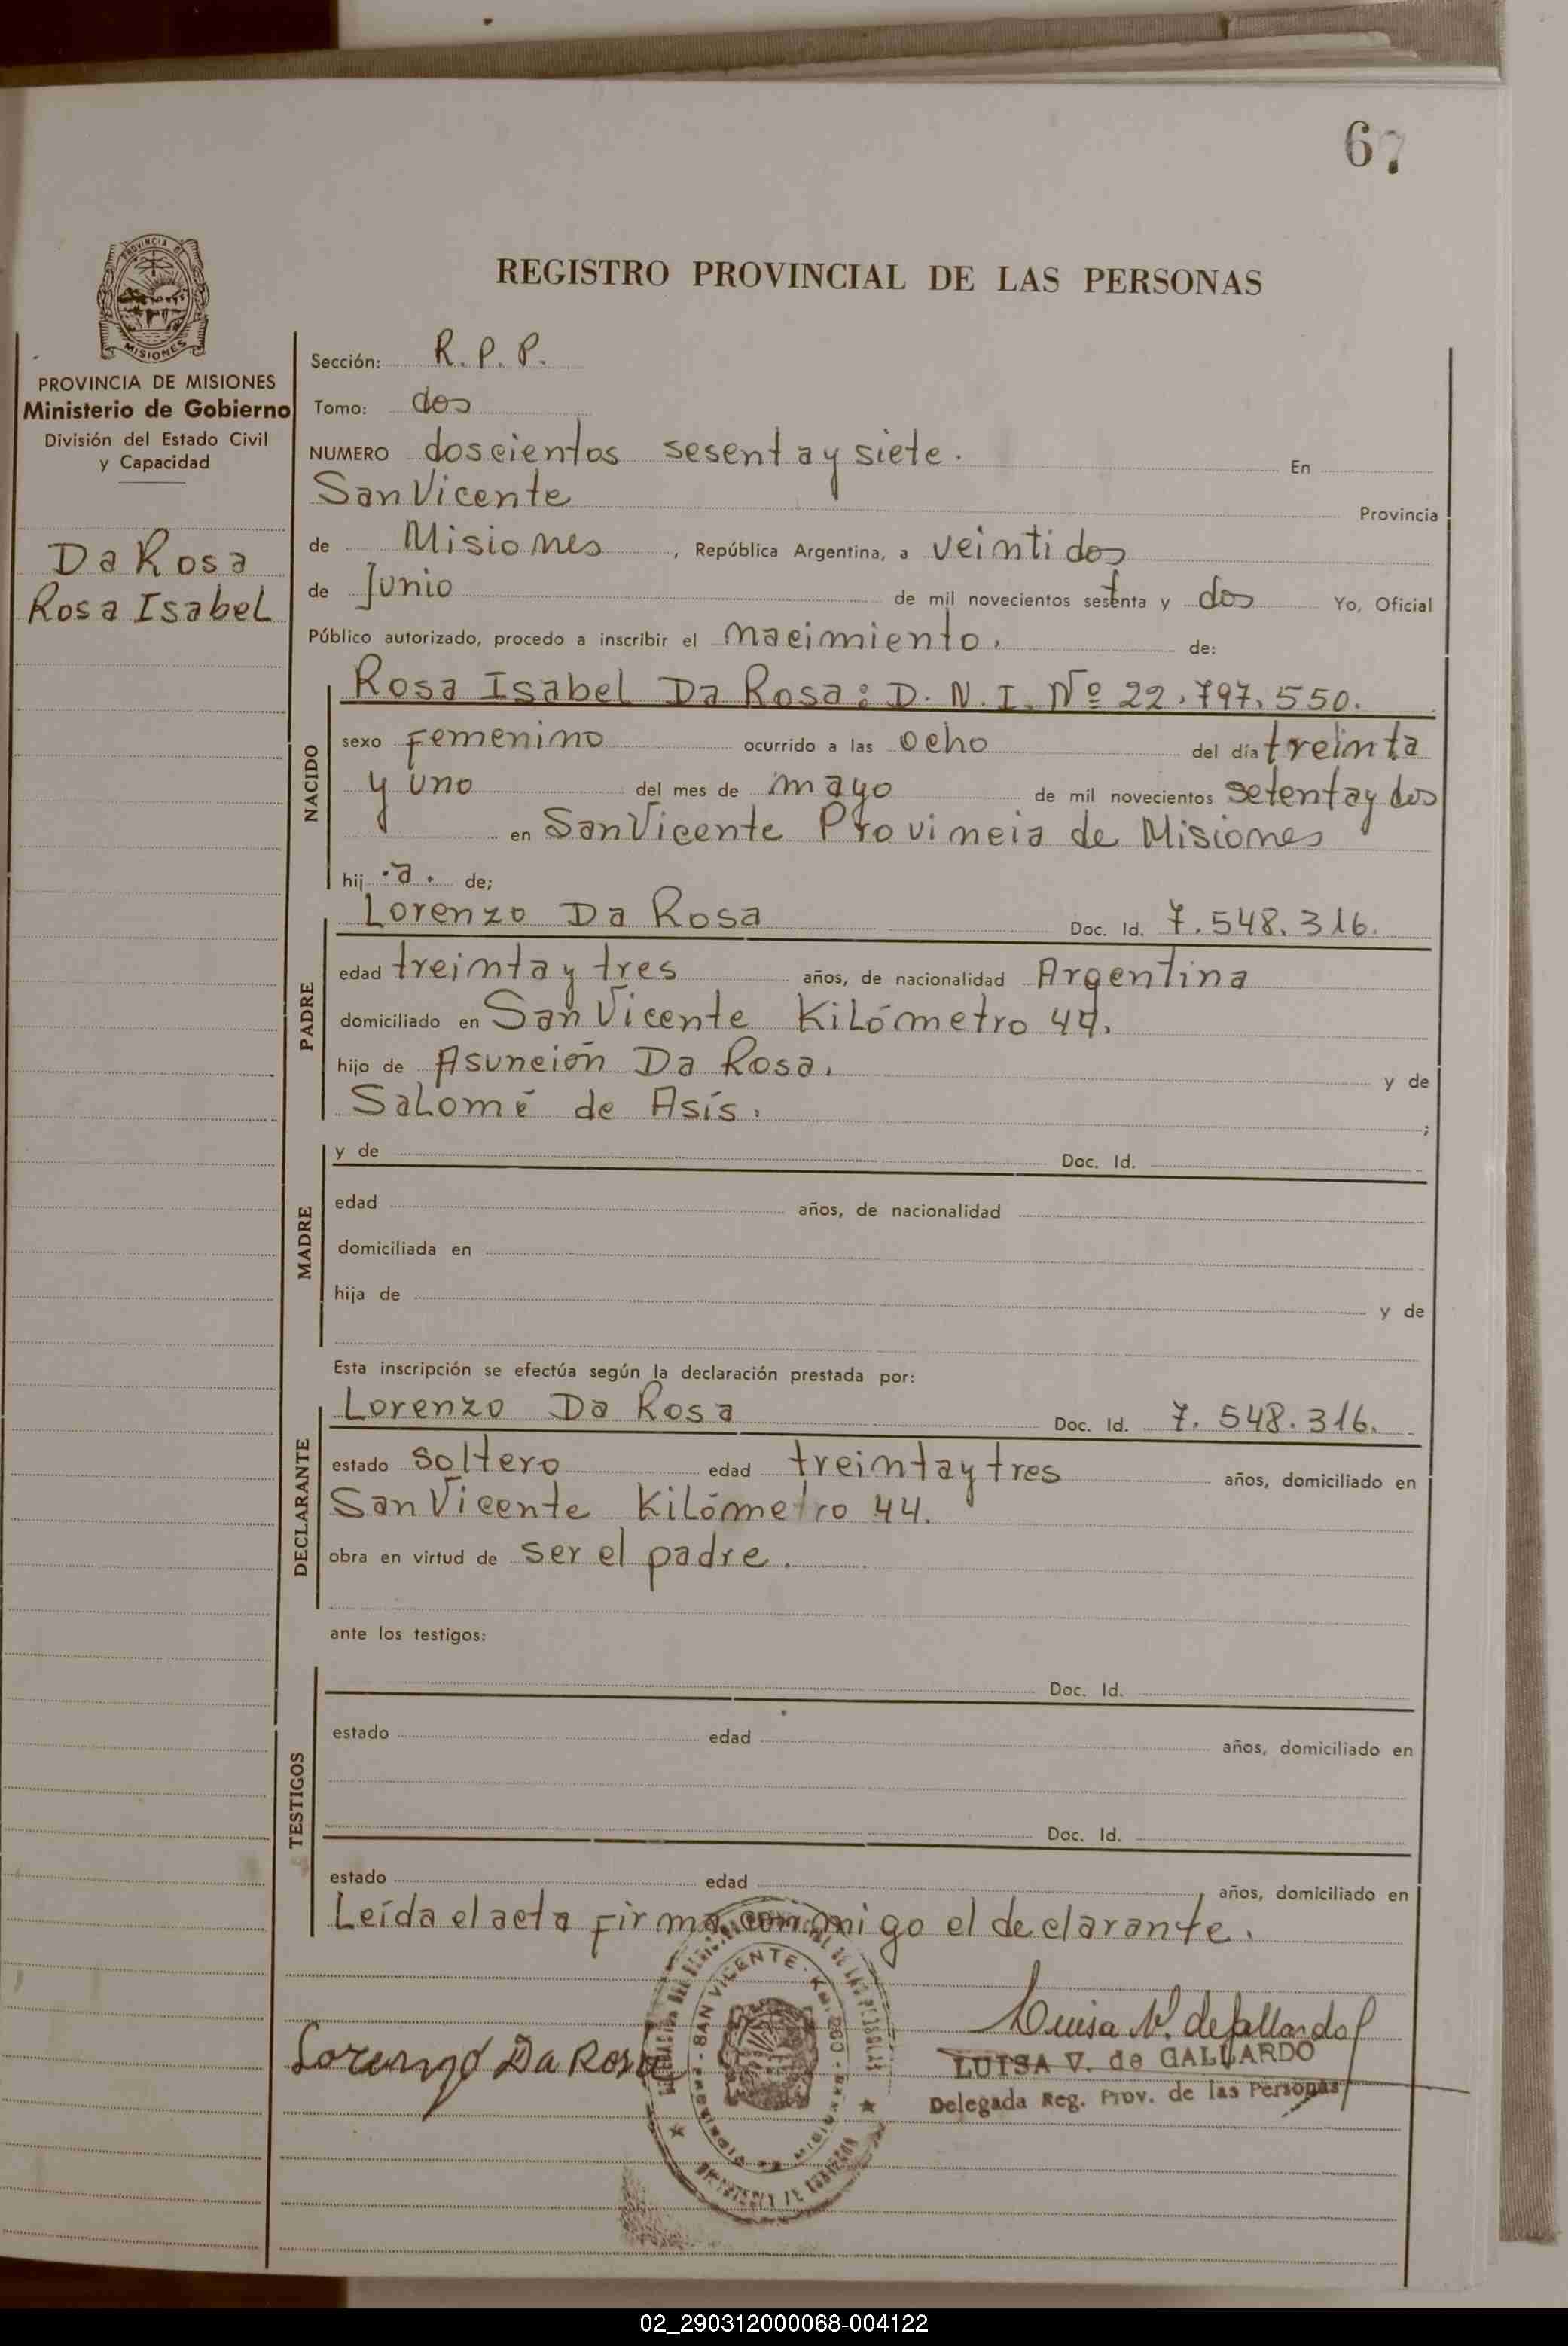 67
REGISTRO PROVINCIAL DE LAS PERSONAS
PROVINCIA DE
MISIONES
PROVINCIA DE MISIONES
Ministerio de Gobierno
División del Estado Civil
y Capacidad
Da Rosa
Rosa Isabel
Sección: R. P. P.
Tomo: dos
NUMERO doscientos sesenta y siete. En
San Vicente Provincia
de Misiones, República Argentina, a veintidos
de Junio de mil novecientos setenta y dos Yo, Oficial
Público autorizado, procedo a inscribir el nacimiento. de:
NACIDO
Rosa Isabel Da Rosa: D. N. I. Nº 22.797.550.
sexo Femenino ocurrido a las ocho del día treinta
y uno del mes de mayo de mil novecientos setenta y dos
en San Vicente Provincia de Misiones
hij .a. de;
PADRE
Lorenzo Da Rosa Doc. Id. 7.548.316.
edad treinta y tres años, de nacionalidad Argentina
domiciliado en San Vicente Kilómetro 44.
hijo de Asunción Da Rosa. y de
Salomé de Asís. ;
MADRE
y de Doc. Id.
edad años, de nacionalidad
domiciliada en
hija de y de
Esta inscripción se efectúa según la declaración prestada por:
DECLARANTE
Lorenzo Da Rosa Doc. Id. 7.548.316.
estado soltero edad treinta y tres años, domiciliado en
San Vicente Kilómetro 44.
obra en virtud de ser el padre.
ante los testigos:
TESTIGOS
Doc. Id.
estado edad años, domiciliado en
Doc. Id.
estado edad años, domiciliado en
Leída el acta firma conmigo el declarante.
SAN VICENTE
Lorenzo Da Rosa
Luisa V. de Gallardo
LUISA V. de GALLARDO
Delegada Reg. Prov. de las Personas
02_290312000068-004122